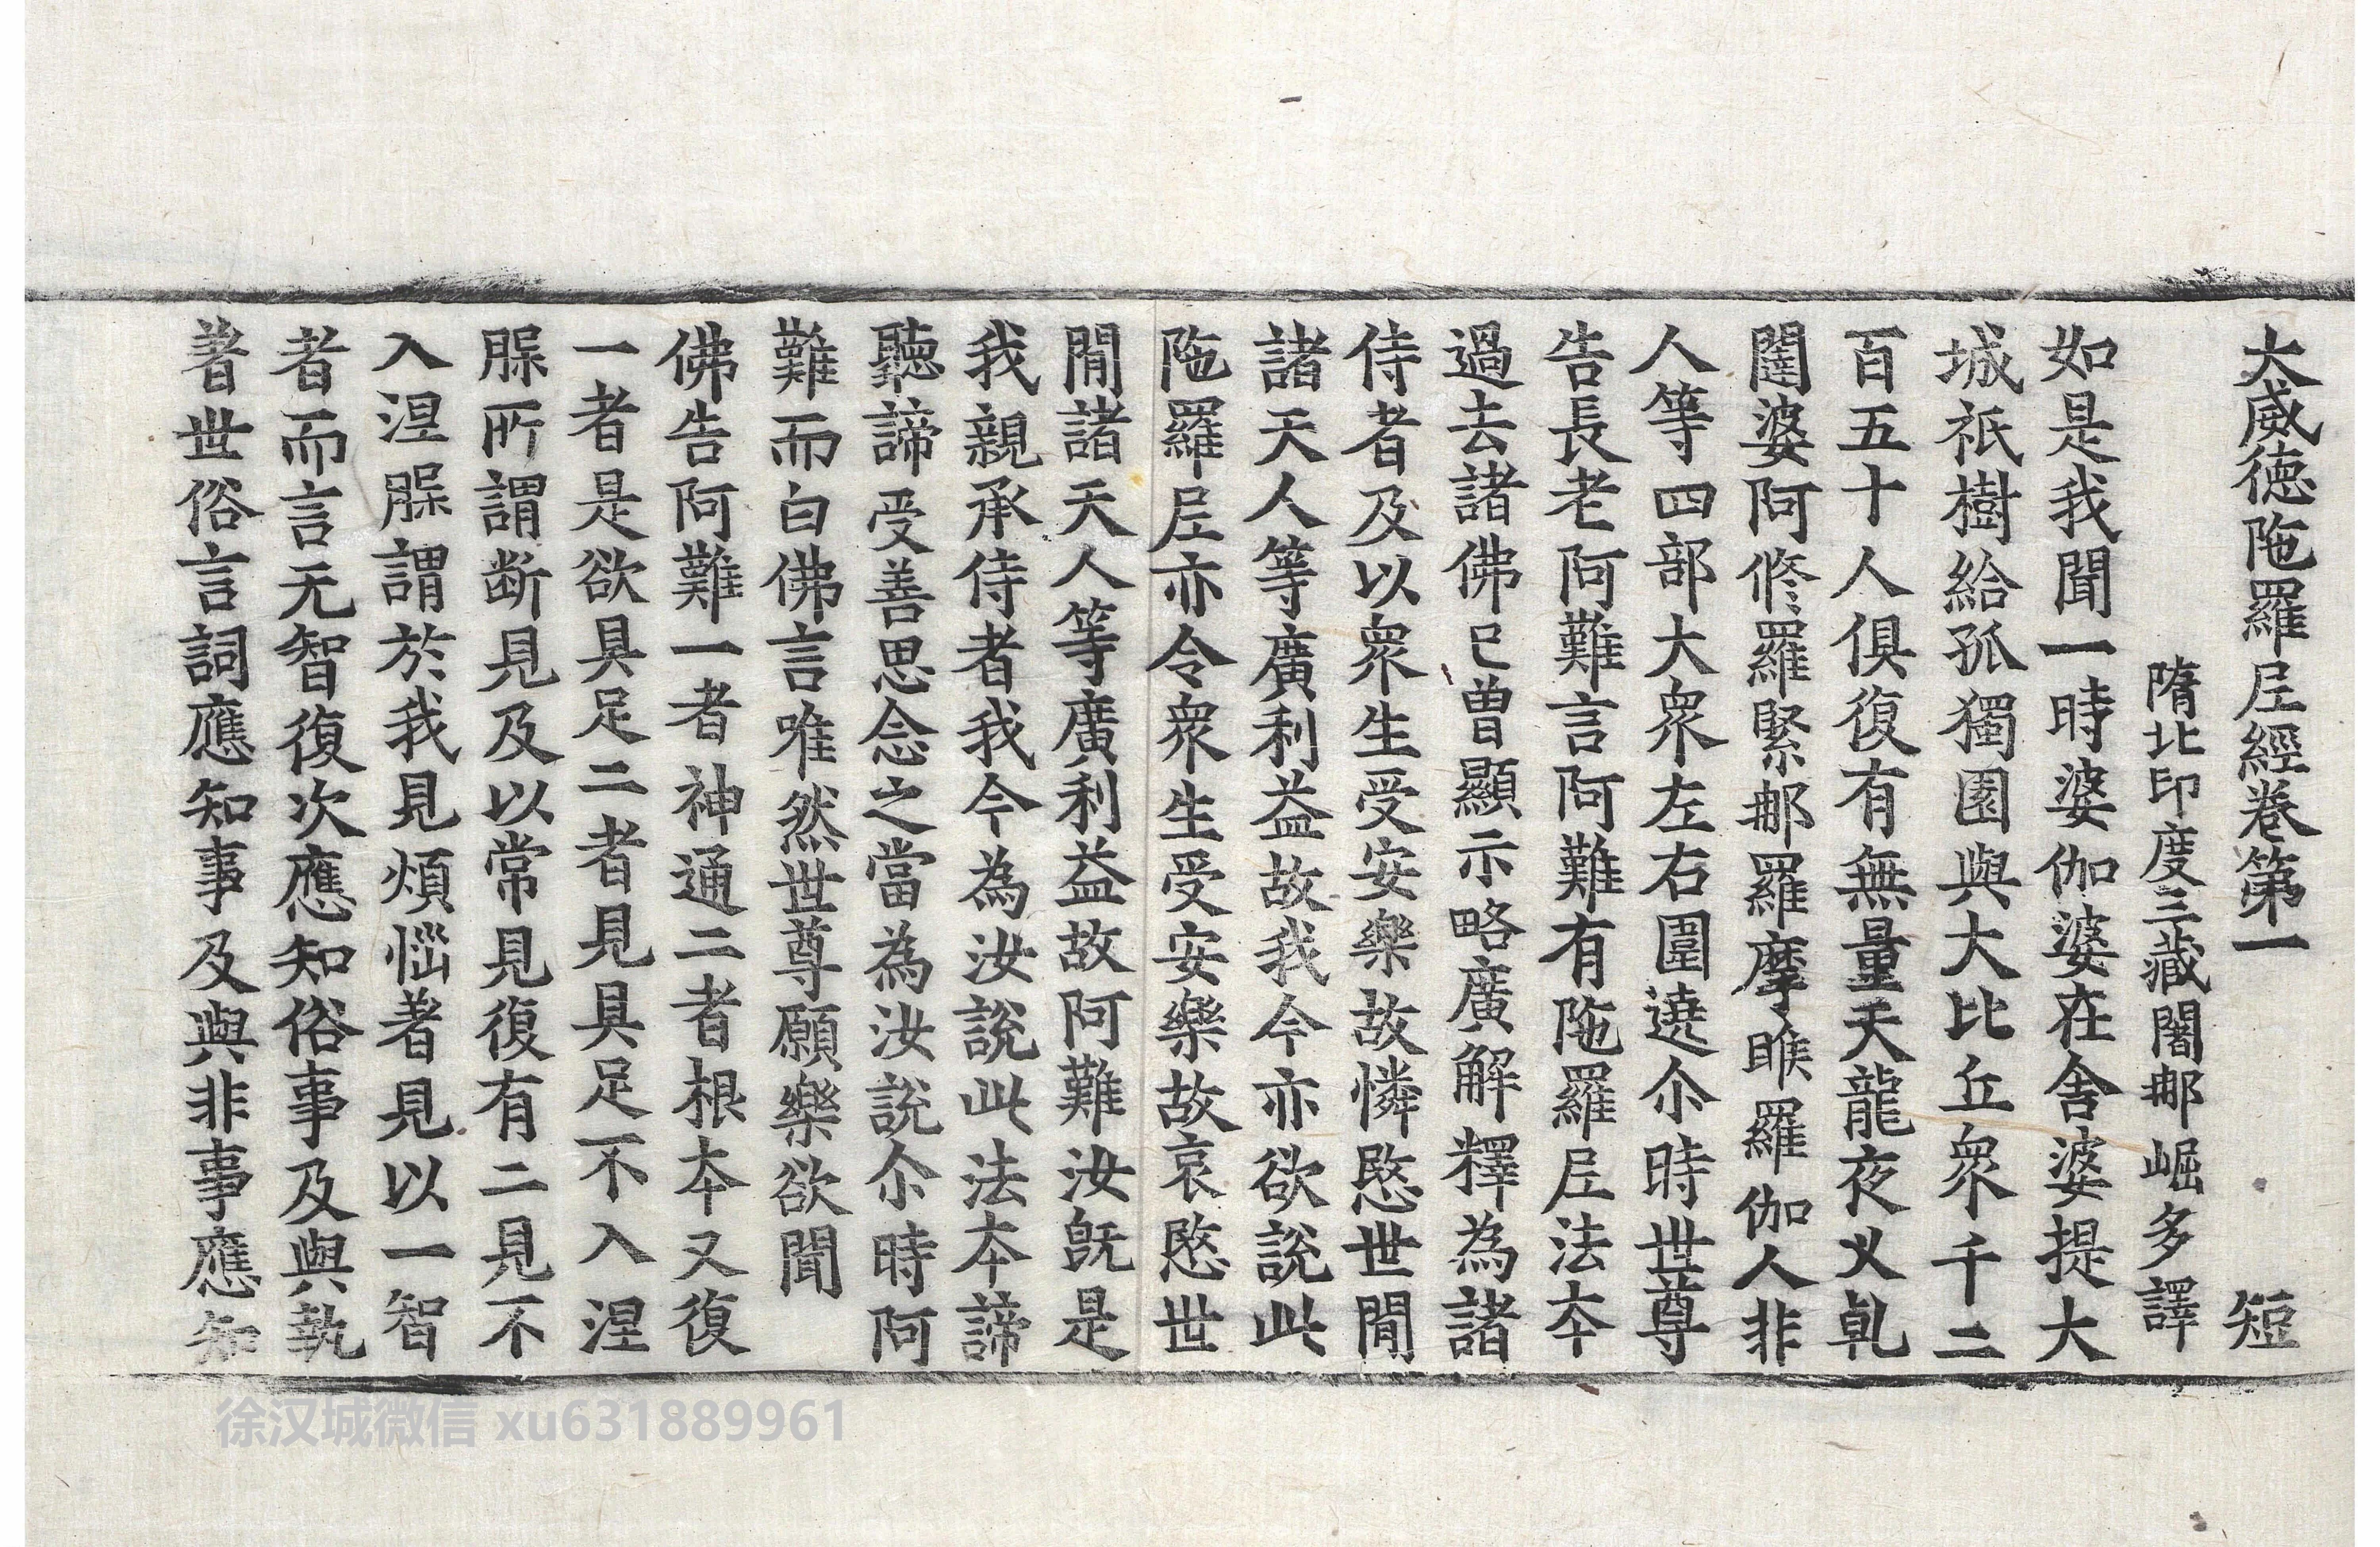 大威德陁羅尼經卷第一 短
隋北印度三藏闍那崛多譯
如是我聞一時婆伽婆在舍婆提大
城祇樹給孤獨園與大比丘衆千二
百五十人俱復有無量天龍夜叉乹
闥婆阿修羅緊那羅摩睺羅伽人非
人等四部大衆左右圍遶尒時世尊
告長老阿難言阿難有陁羅尼法本
過去諸佛已曾顯示略廣解釋為諸
侍者及以衆生受安樂故憐愍世間
諸天人等廣利益故我今亦欲說此
陁羅尼亦令衆生受安樂故哀愍世
間諸天人等廣利益故阿難汝旣是
我親承侍者我今為汝說此法本諦
聽諦受善思念之當為汝說尒時阿
難而白佛言唯然世尊願樂欲聞
佛告阿難一者神通二者根本又復
一者是欲具足二者見具足不入涅
槃所謂断見及以常見復有二見不
入涅槃謂於我見煩惱著見以一智
者而言无智復次應知俗事及與執
著世俗言詞應知事及與非事應知
徐汉城微信 xu631889961